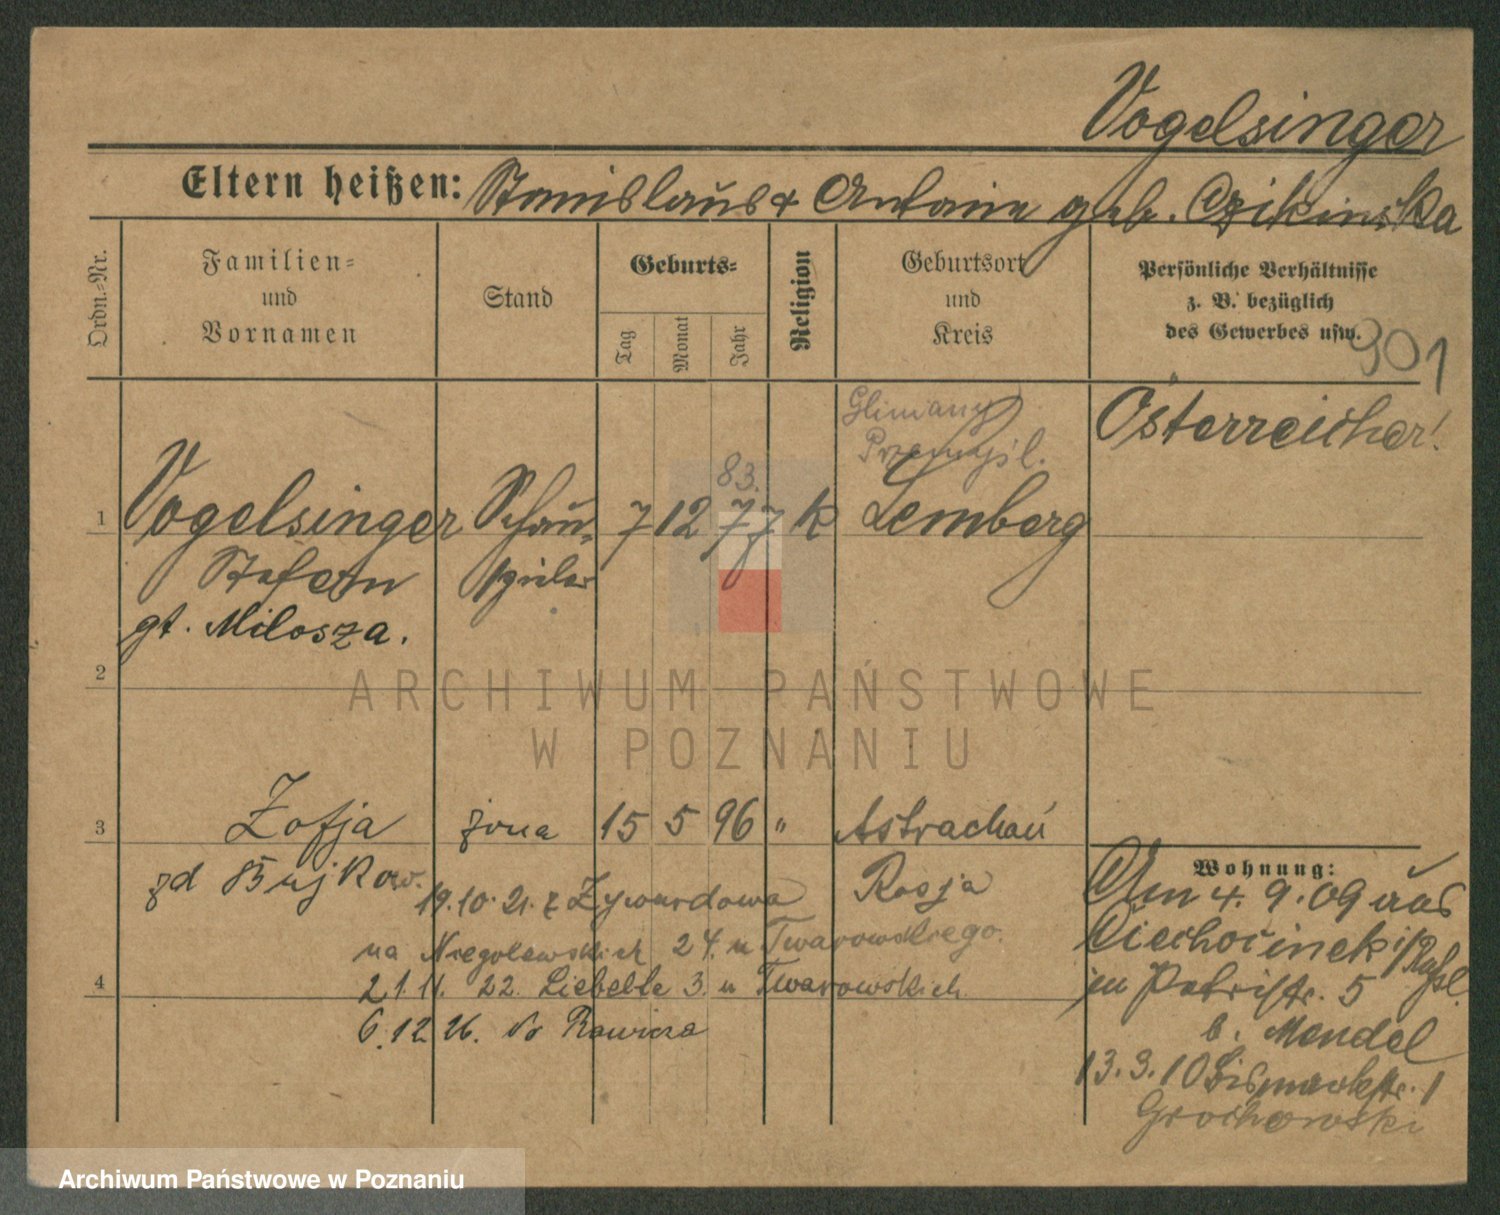 Vogelsinger
Eltern heißen: Stanislaus & Antonie geb. Czikinska
Ordn.-Nr.
Familien-
und
Vornamen
Stand
Geburts-
Tag
Monat
Jahr
Religion
Geburtsort
und
Kreis
Persönliche Verhältnisse
z. B. bezüglich
des Gewerbes usw.
901
Glimany
Przemysl.
Österreicher!
83.
1 Vogelsinger Schau- 7 12 77 k Lemberg
Stefan spieler
gt. Milosza.
2
ARCHIWUM PAŃSTWOWE
W POZNANIU
3 Zofja żona 15 5 96 " Astrachań
zd Bujkow. Rosja
19.10.21. z Żyrardowa
na Niegolewskich 24. u Twarowskiego.
4 21.11.22. Liebelta 3. u Twarowskich.
6.12.26. do Rawicza
Wohnung:
Am 4.9.09 aus
Ciechocinek i/Rußl.
in Petristr. 5
b. Mendel
13.3.10 Bismarckstr. 1
Grochowski
Archiwum Państwowe w Poznaniu